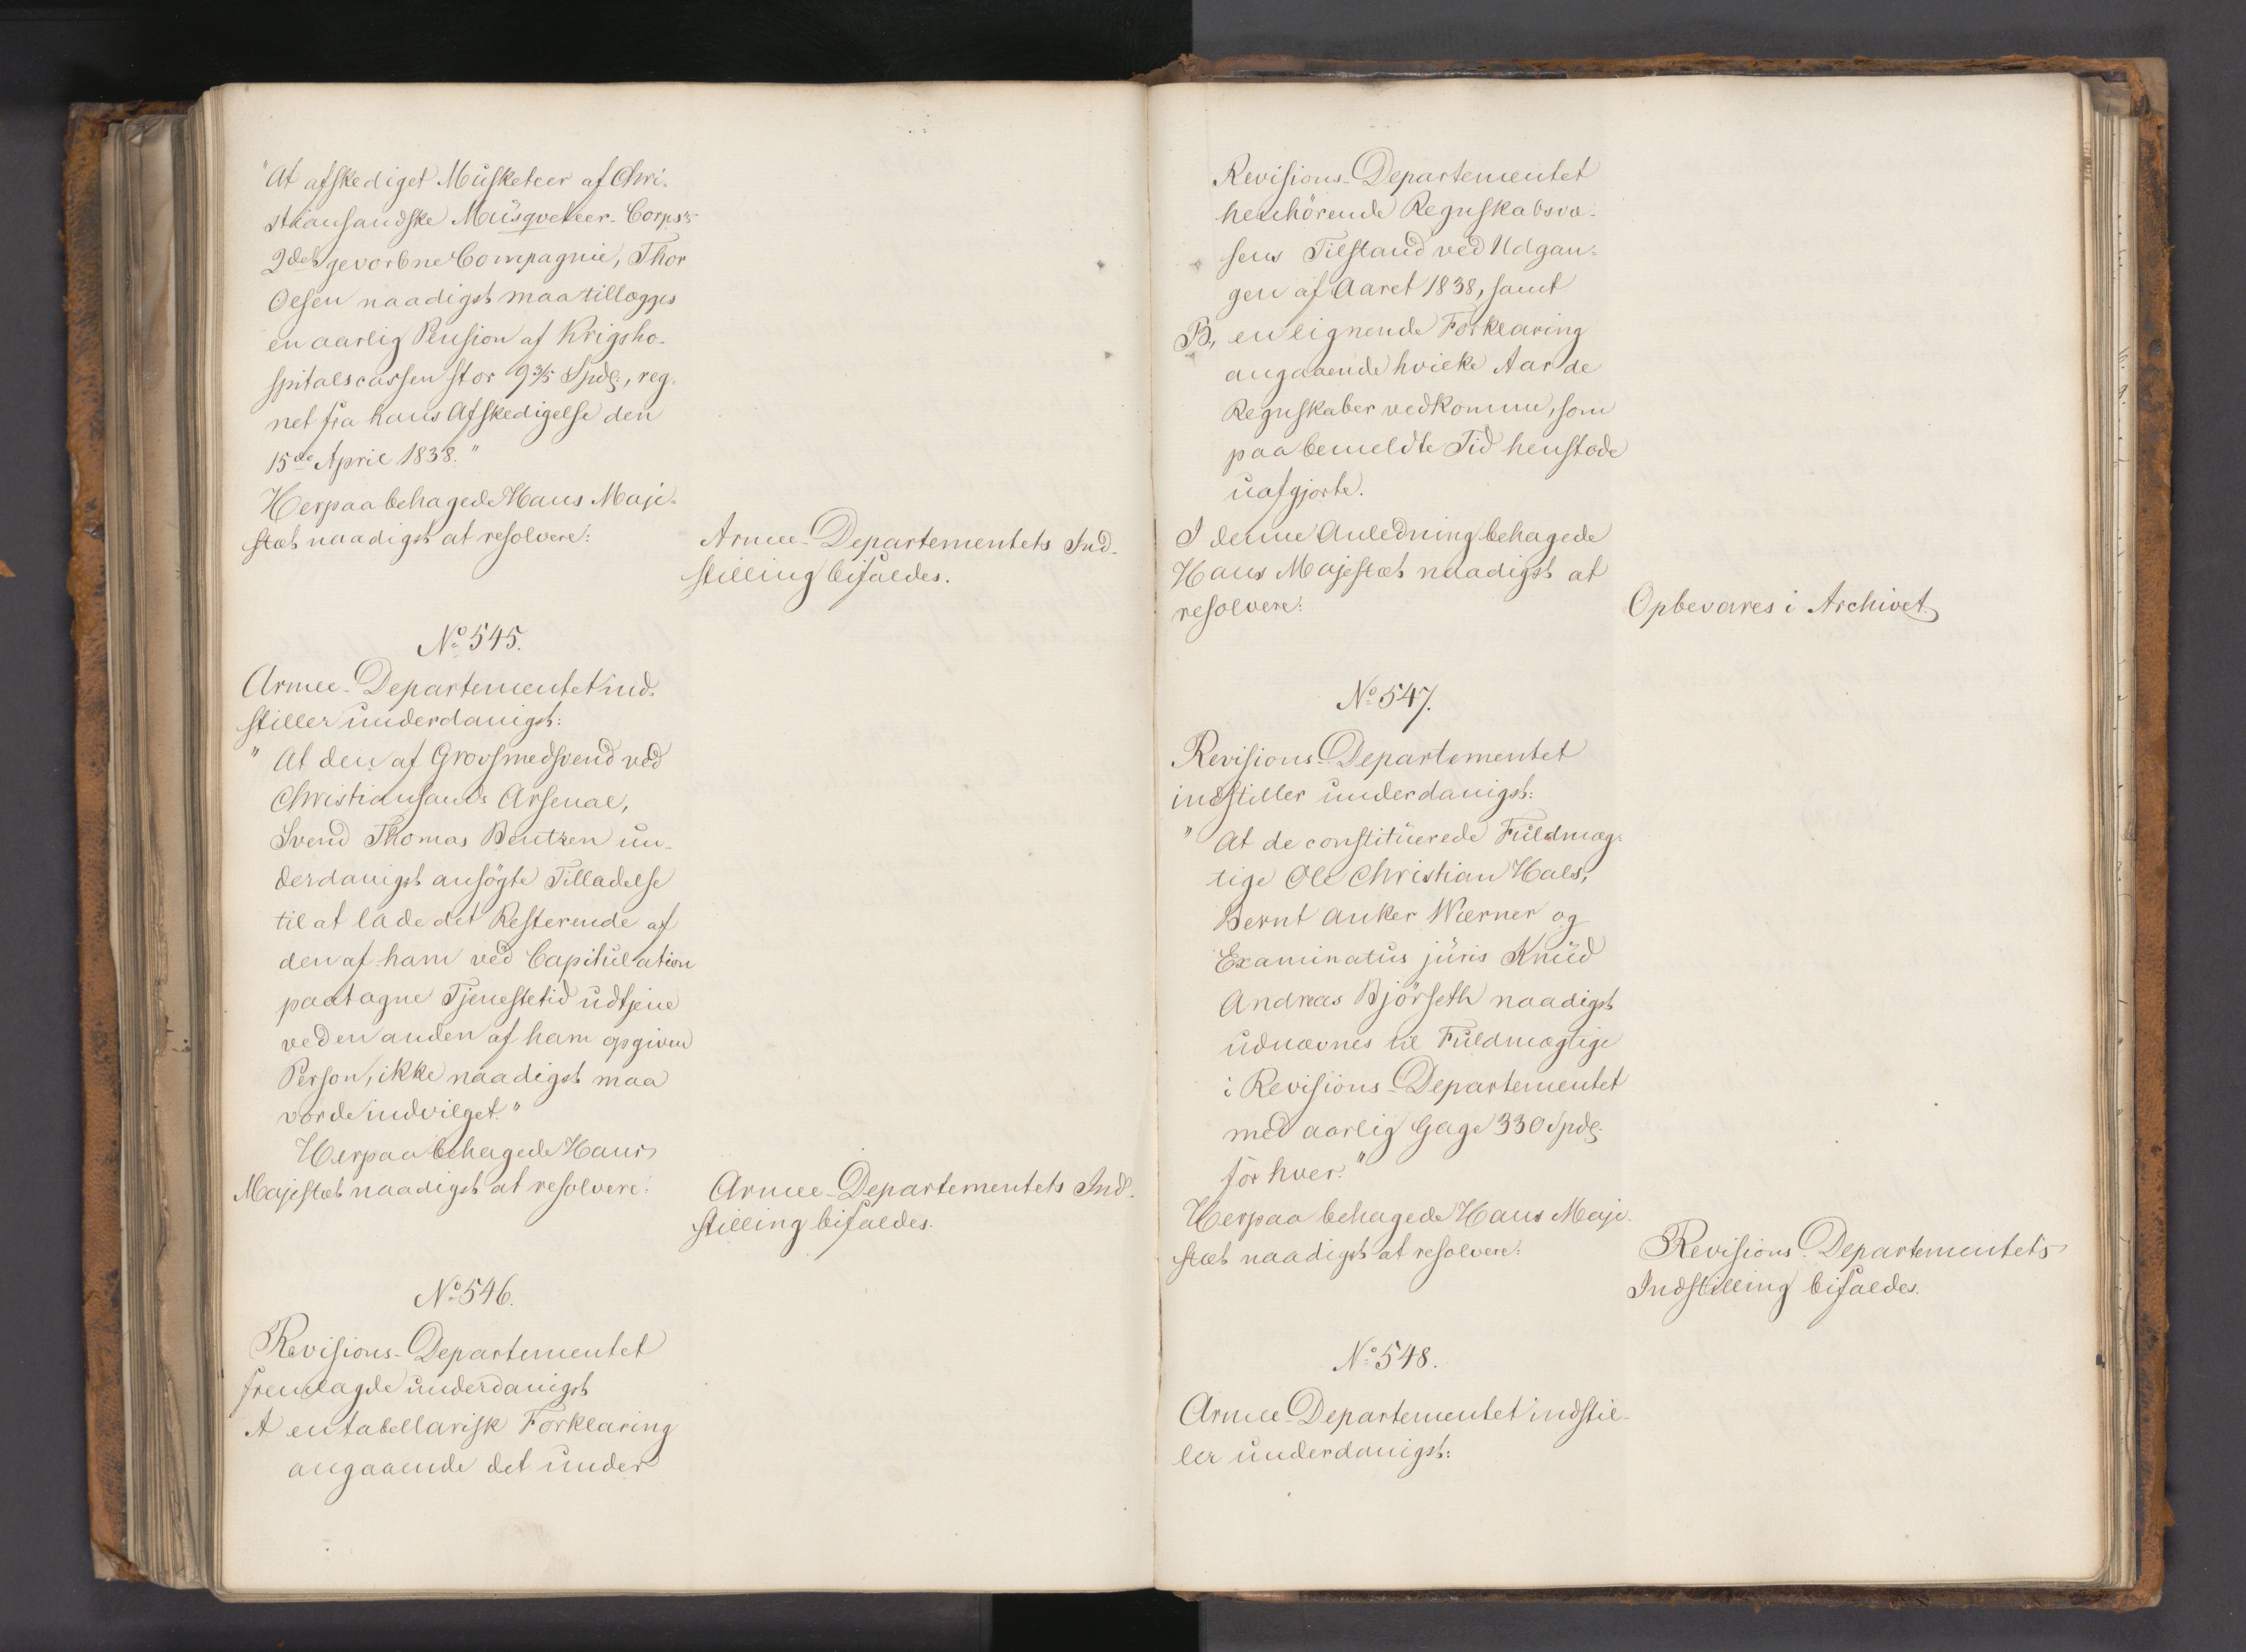 "At afskediget Musketeer af Chri-
stiansandske Musqveteer-Corps's
2det gevorbne Compagnie, Thor
Olsen naadigst maa tillægges
en aarlig Pension af Krigsho-
spitalscassen stor 9 3/5 Spdl:, reg-
net fra hans Afskedigelse den
15de April 1838."
Herpaa behagede Hans Maje-
stæt naadigst at resolvere:
Armee-Departementets Ind-
stilling bifaldes.
No 545.
Armee-Departementet ind-
stiller underdanigst:
" At den af Grovsmedsvend ved
Christiansands Arsenal,
Svend Thomas Bentzen un-
derdanigst ansögte Tilladelse
til at lade det Resterende af
den af ham ved Capitulation
paatagne Tjenestetid udtjene
ved en anden af ham opgiven
Person, ikke naadigst maa
vorde indvilget."
Herpaa behagede Hans
Majestæt naadigst at resolvere:
Armee-Departementets Ind-
stilling bifaldes.
No 546.
Revisions-Departementet
fremlagde underdanigst
A en tabellarisk Forklaring
angaaende det under
Revisions-Departementet
henhörende Regnskabsvæ-
sens Tilstand ved Udgan-
gen af Aaret 1838, samt
B, en lignende Forklaring
angaaende hvilke Aar de
Regnskaber vedkomme, som
paa bemeldte Tid henstode
uafgjorte.
I denne Anledning behagede
Hans Majestæt naadigst at
resolvere:
Opbevares i Archivet
No 547.
Revisions-Departementet
indstiller underdanigst:
" At de constituerede Fuldmæg-
tige Ole Christian Hals,
Bernt Anker Wærner og
Examinatus juris Knud
Andreas Björseth naadigst
udnævnes til Fuldmægtige
i Revisions-Departementet
med aarlig Gage 330 Spdl:
for hver."
Herpaa behagede Hans Maje-
stæt naadigst at resolvere:
Revisions-Departementets
Indstilling bifaldes.
No 548.
Armee-Departementet indstil-
ler underdanigst: